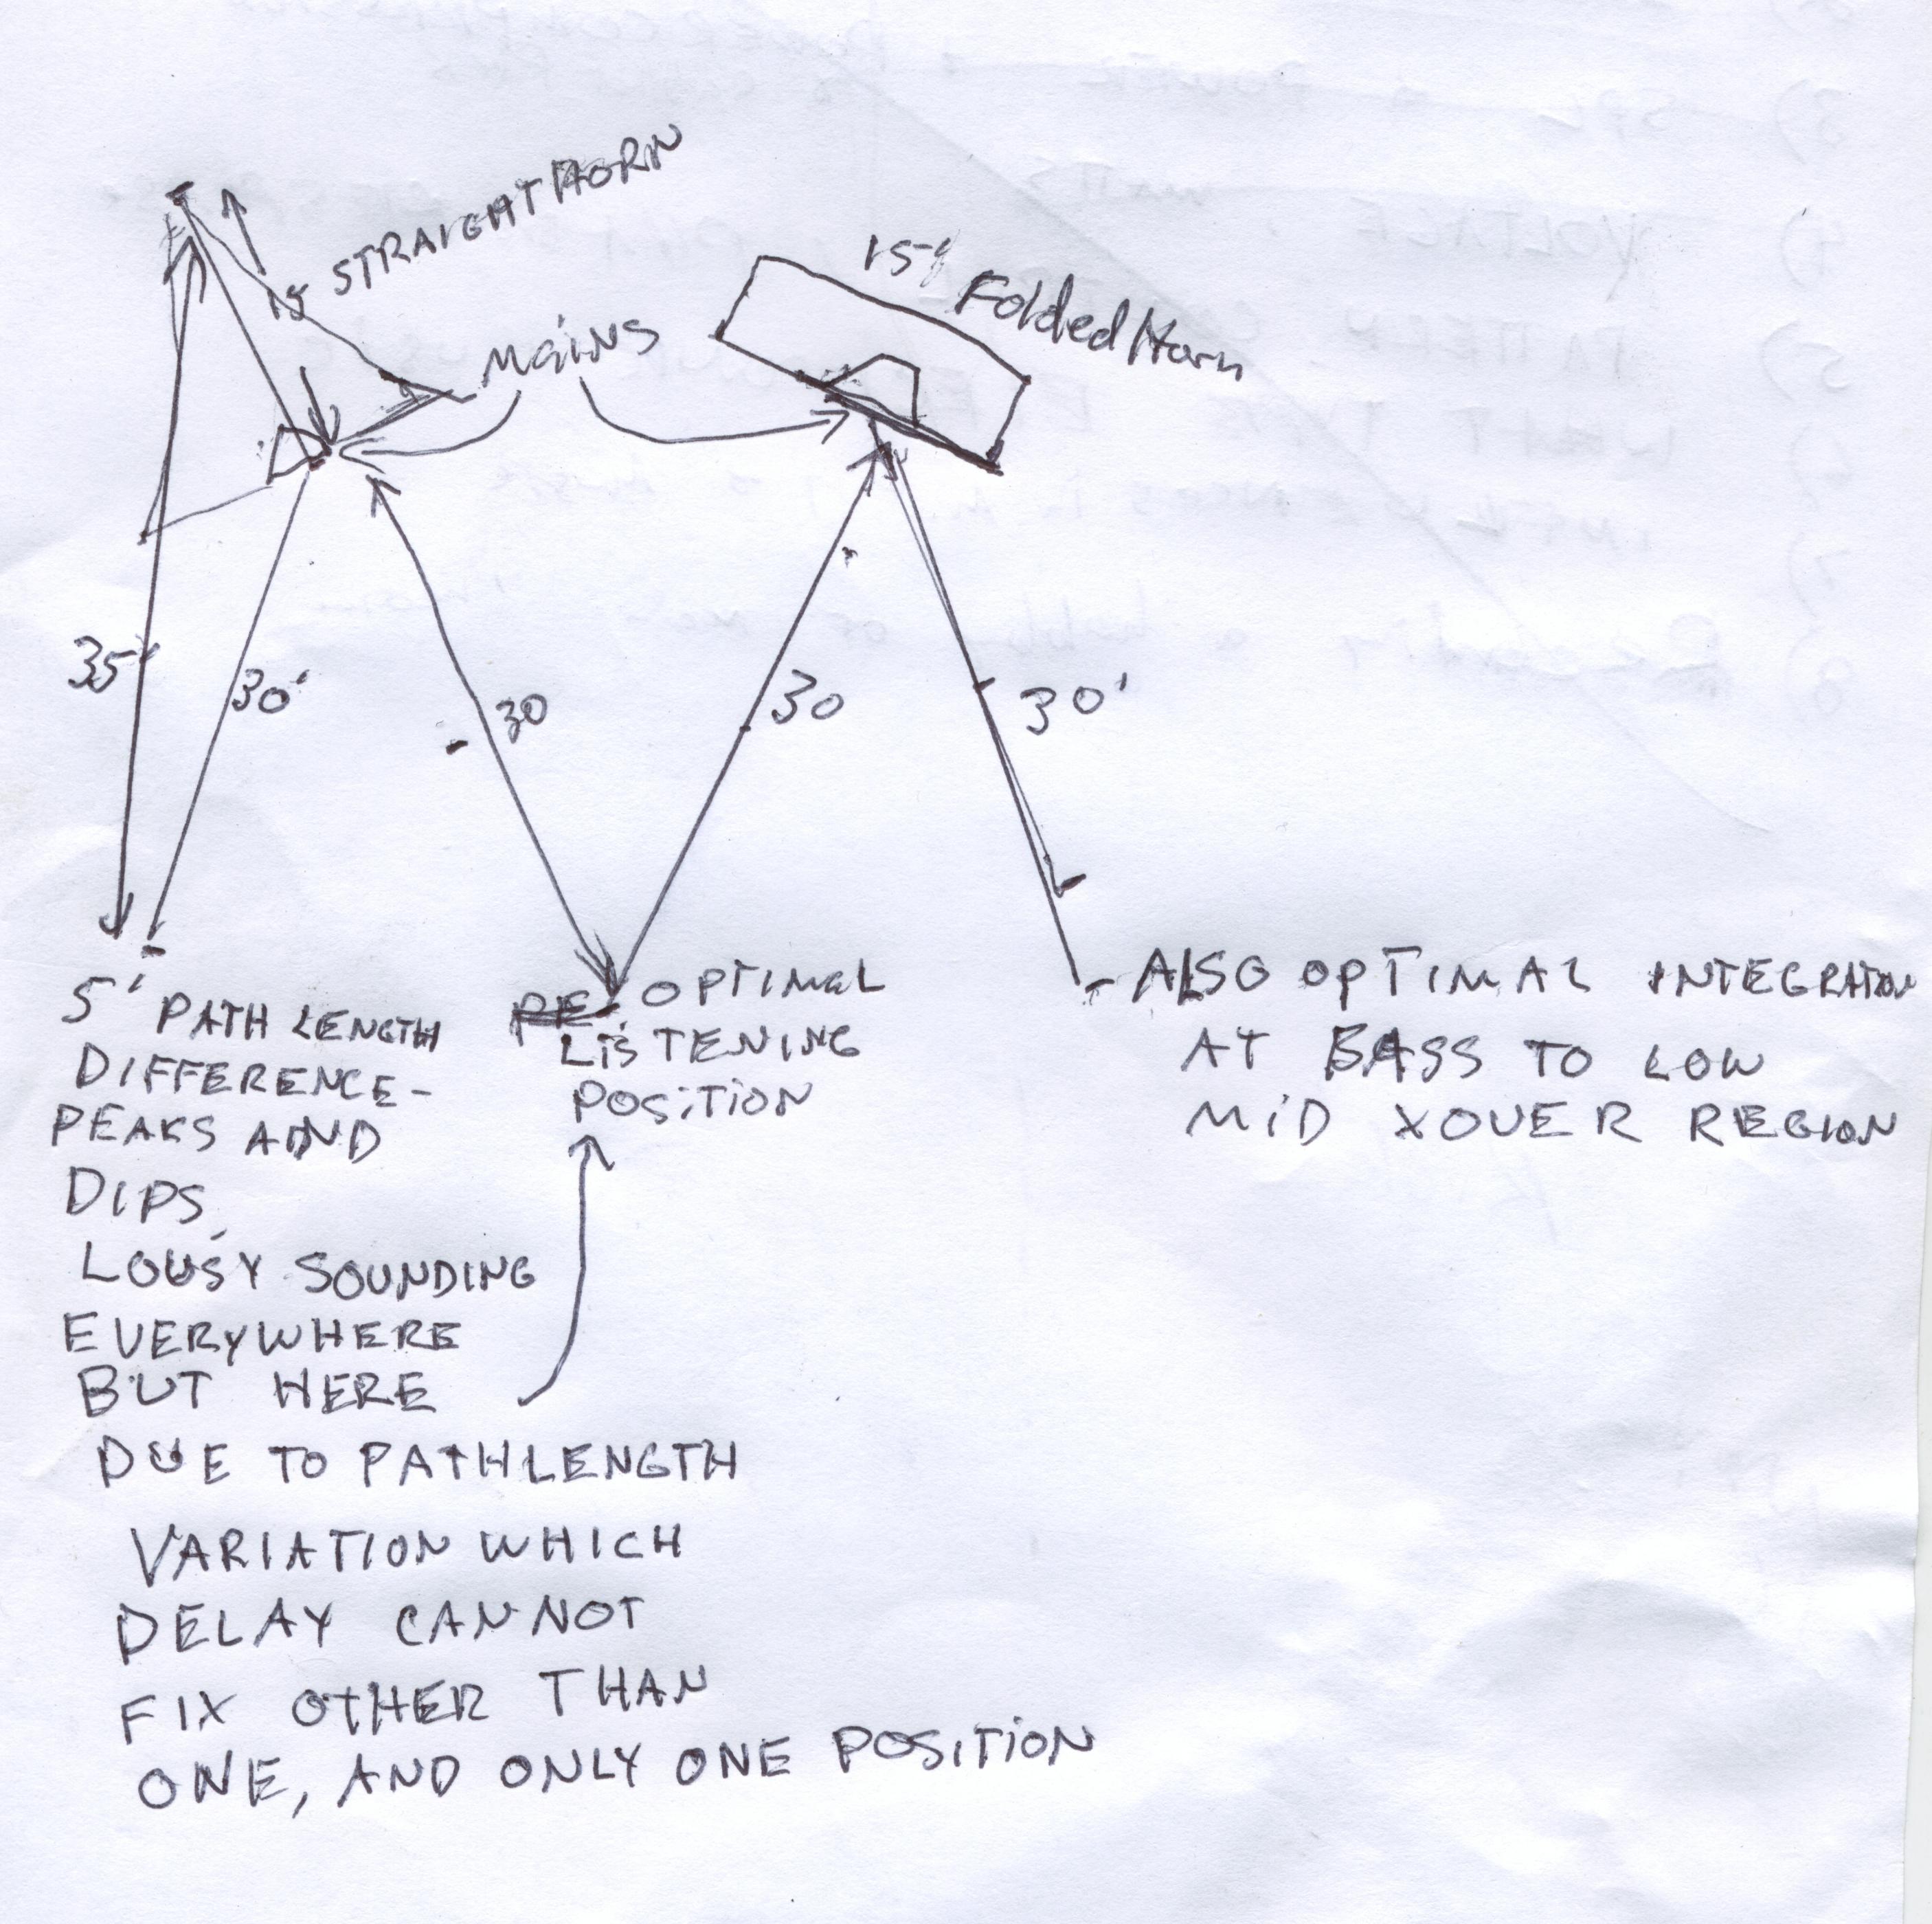 15' STRAIGHT HORN
15' Folded Horn
MAINS
35'
30'
30
30
30'
5' PATH LENGTH
DIFFERENCE-
PEAKS AND
DIPS,
LOUSY SOUNDING
EVERYWHERE
BUT HERE
DUE TO PATHLENGTH
VARIATION WHICH
DELAY CANNOT
FIX OTHER THAN
ONE, AND ONLY ONE POSITION
OPTIMAL
LISTENING
POSITION
ALSO OPTIMAL INTEGRATION
AT BASS TO LOW
MID XOVER REGION